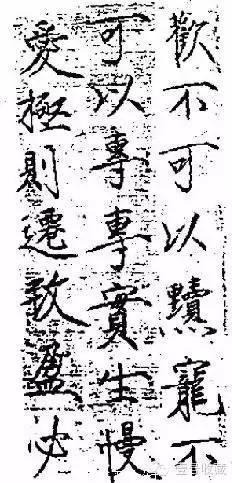 歡不可以黷寵不
可以專專實生慢
愛極則遷致盈必
壹号收藏